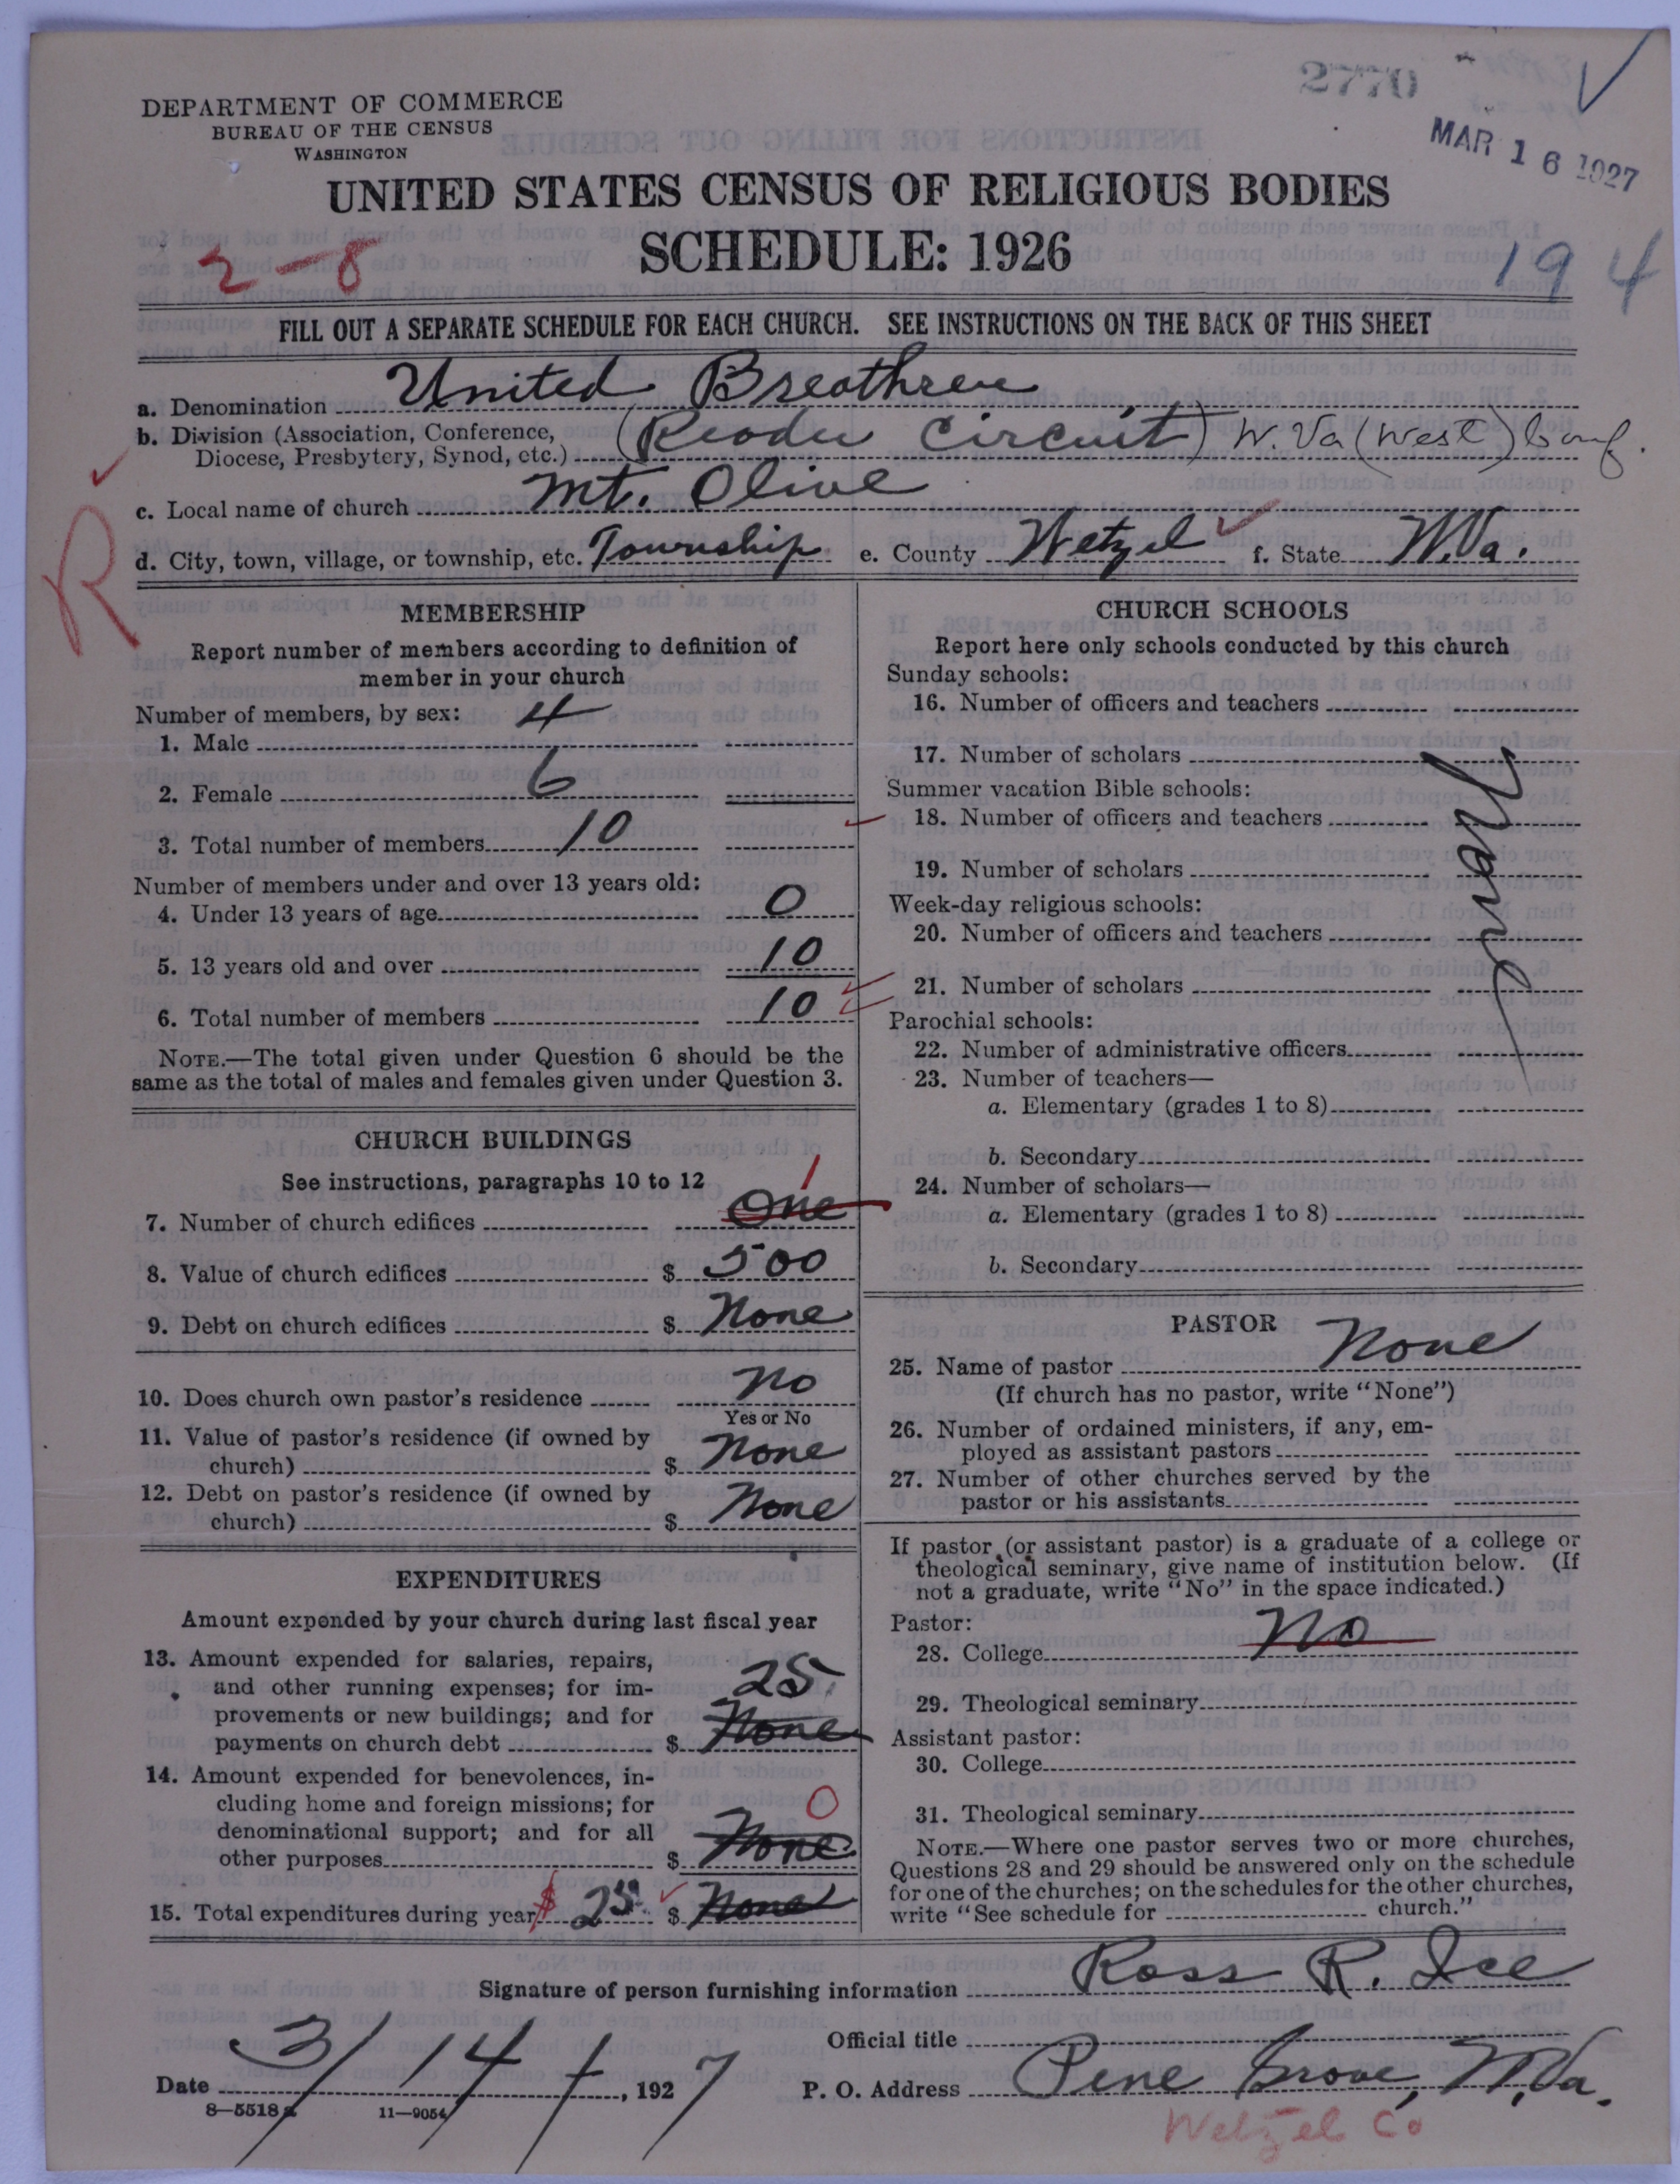 2770
MAR 16 1927
DEPARTMENT OF COMMERCE
BUREAU OF THE CENSUS
WASHINGTON
UNITED STATES CENSUS OF RELIGIOUS BODIES
SCHEDULE: 1926
2-8
194
FILL OUT A SEPARATE SCHEDULE FOR EACH CHURCH. SEE INSTRUCTIONS ON THE BACK OF THIS SHEET
a. Denomination United Breathren
b. Division (Association, Conference, Diocese, Presbytery, Synod, etc.) (Reader Circuit) W. Va (West) Conf.
R
c. Local name of church Mt. Olive
d. City, town, village, or township, etc. Township e. County Wetzel f. State W.Va.
MEMBERSHIP
Report number of members according to definition of
member in your church
Number of members, by sex:
1. Male 4
2. Female 6
3. Total number of members 10
Number of members under and over 13 years old:
4. Under 13 years of age 0
5. 13 years old and over 10
6. Total number of members 10
NOTE.—The total given under Question 6 should be the
same as the total of males and females given under Question 3.
CHURCH BUILDINGS
See instructions, paragraphs 10 to 12
7. Number of church edifices One 1
8. Value of church edifices $ 500
9. Debt on church edifices $ None
10. Does church own pastor's residence No
Yes or No
11. Value of pastor's residence (if owned by
church) $ None
12. Debt on pastor's residence (if owned by
church) $ None
EXPENDITURES
Amount expended by your church during last fiscal year
13. Amount expended for salaries, repairs,
and other running expenses; for im-
provements or new buildings; and for
payments on church debt $ None 25
14. Amount expended for benevolences, in-
cluding home and foreign missions; for
denominational support; and for all
other purposes $ None 0
15. Total expenditures during year $ 25 $ None
CHURCH SCHOOLS
Report here only schools conducted by this church
Sunday schools:
16. Number of officers and teachers
17. Number of scholars
Summer vacation Bible schools:
18. Number of officers and teachers
19. Number of scholars
Week-day religious schools:
20. Number of officers and teachers
21. Number of scholars
Parochial schools:
22. Number of administrative officers
23. Number of teachers—
a. Elementary (grades 1 to 8)
b. Secondary
24. Number of scholars—
a. Elementary (grades 1 to 8)
b. Secondary
PASTOR
25. Name of pastor None
(If church has no pastor, write "None")
26. Number of ordained ministers, if any, em-
ployed as assistant pastors
27. Number of other churches served by the
pastor or his assistants
If pastor (or assistant pastor) is a graduate of a college or
theological seminary, give name of institution below. (If
not a graduate, write "No" in the space indicated.)
Pastor:
28. College No
29. Theological seminary
Assistant pastor:
30. College
31. Theological seminary
NOTE.—Where one pastor serves two or more churches,
Questions 28 and 29 should be answered only on the schedule
for one of the churches; on the schedules for the other churches,
write "See schedule for church."
Signature of person furnishing information Ross R. Ice
Official title
Date 3/14 1927 P. O. Address Pine Grove, W.Va.
8-5518a 11-9054
Wetzel Co